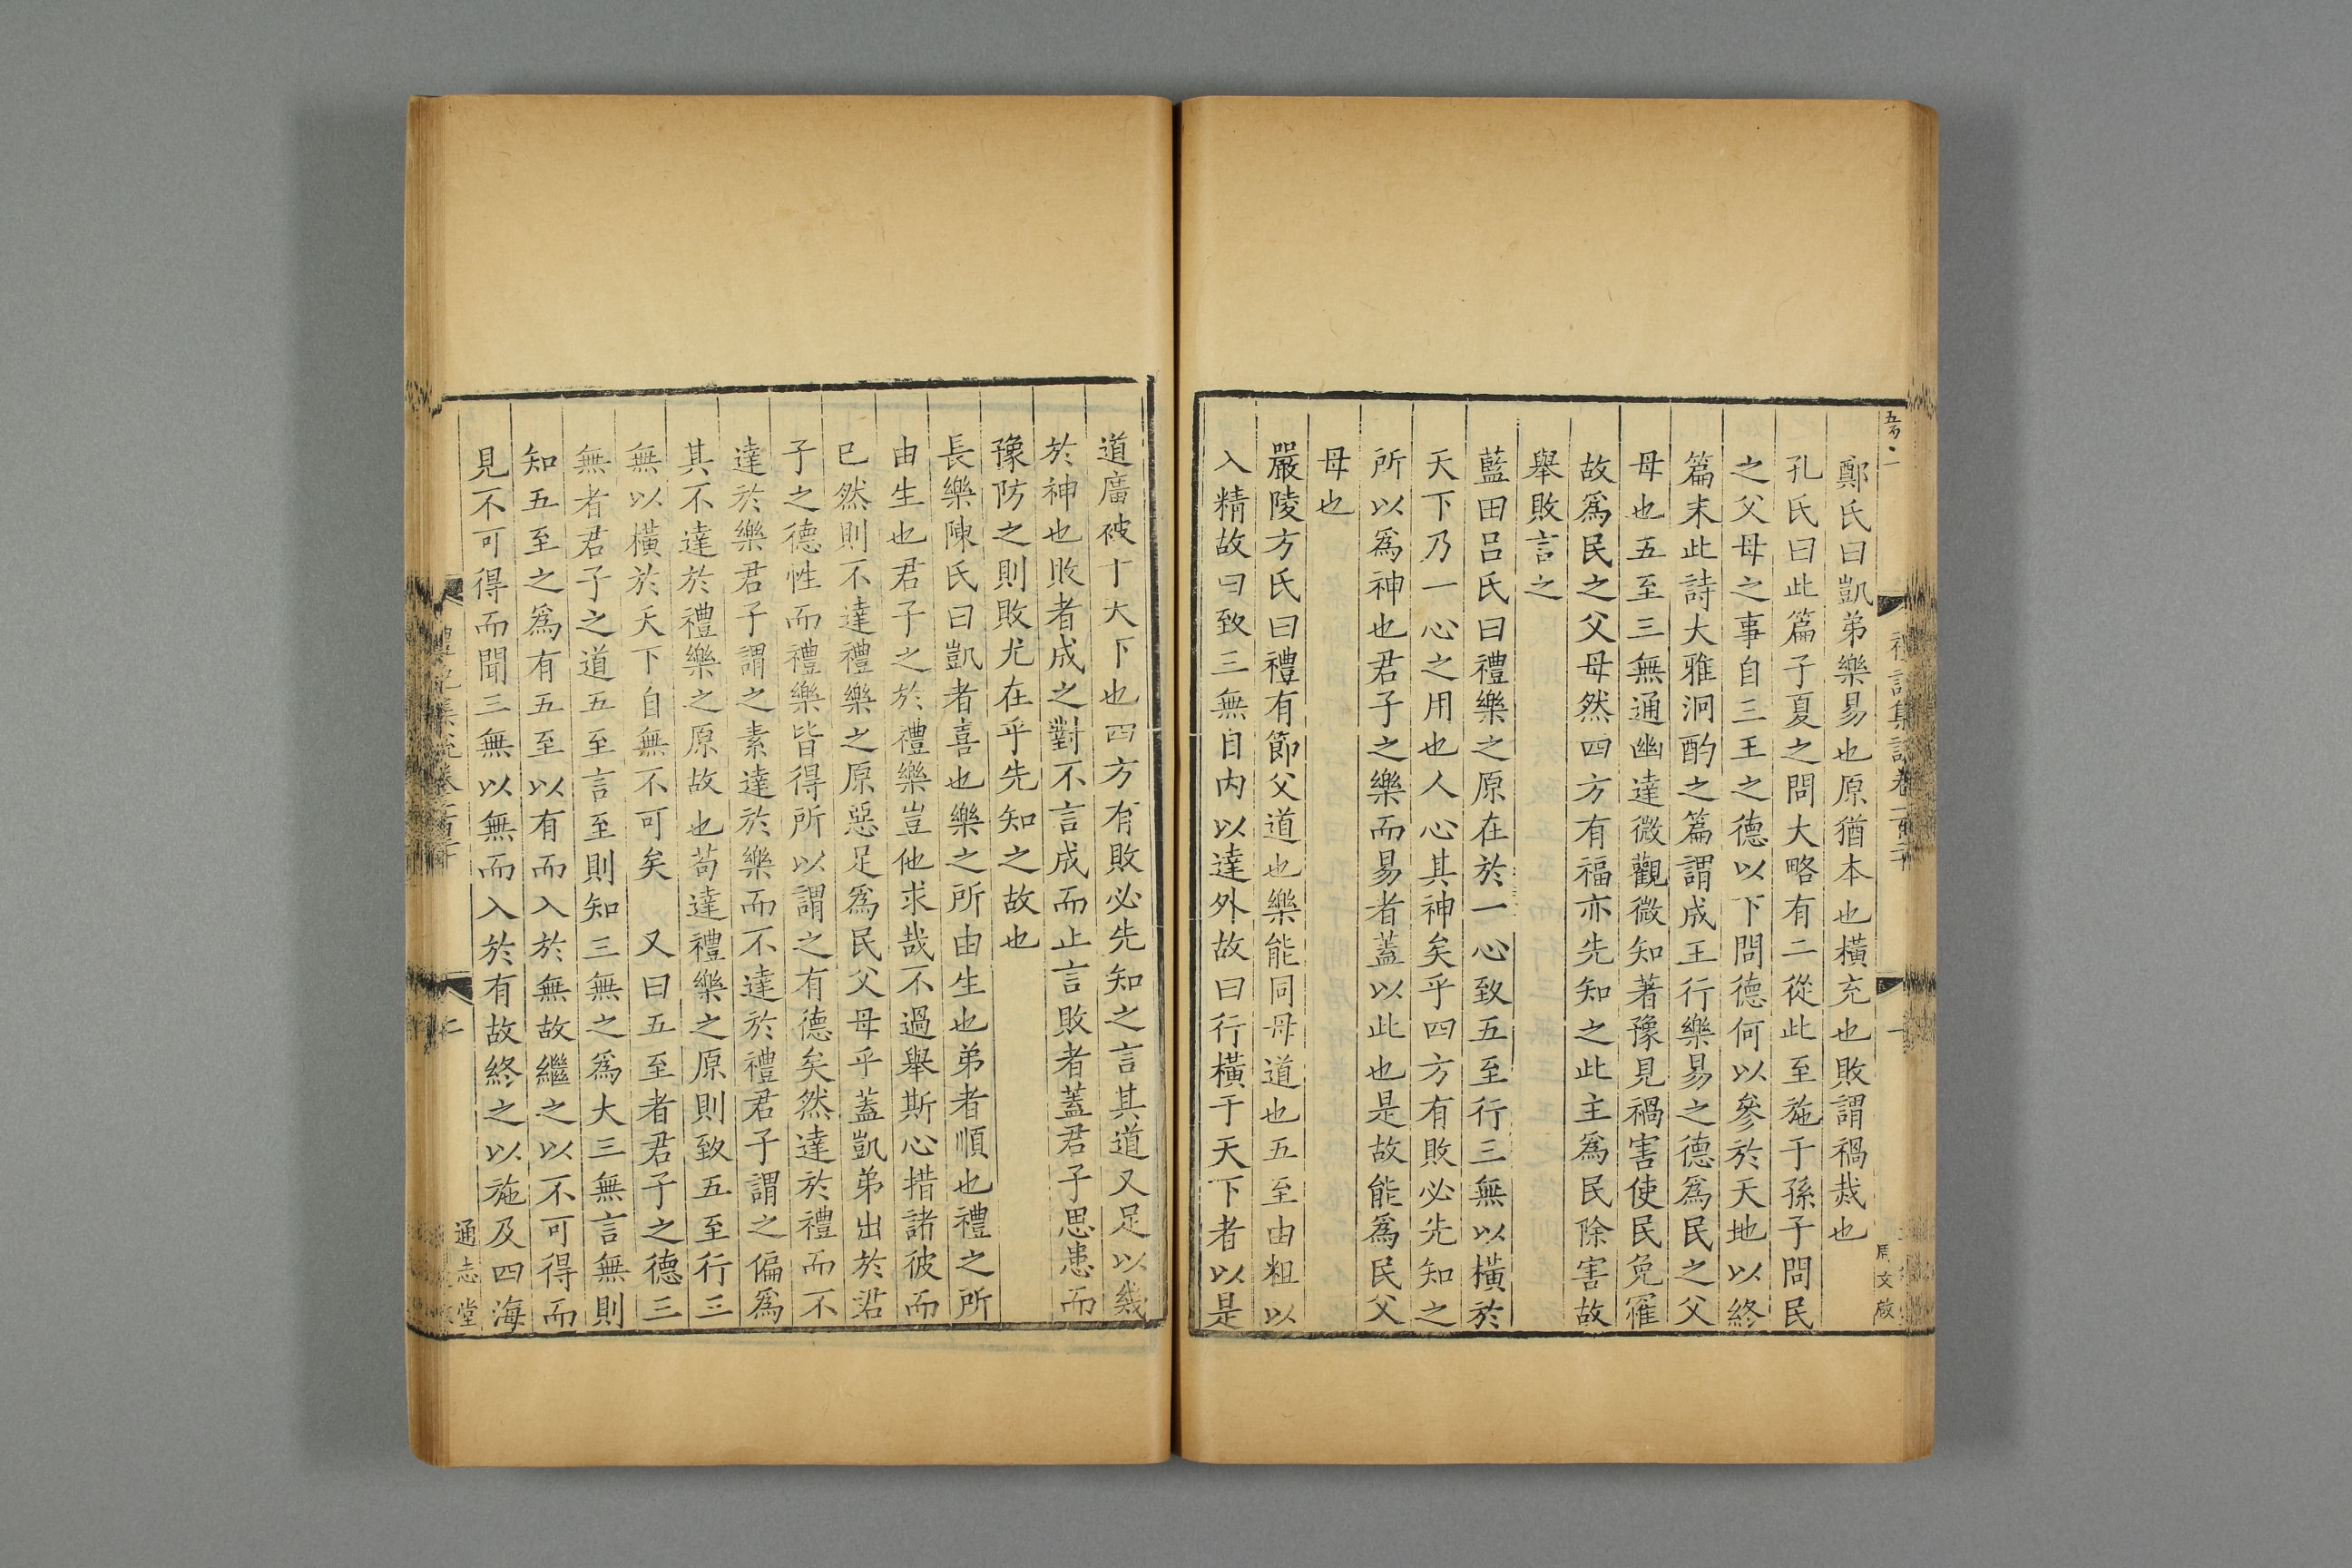 鄭氏曰凱弟樂易也原猶本也橫充也敗謂禍烖也
孔氏曰此篇子夏之問大略有二從此至施于孫子問民
之父母之事自三王之德以下問德何以參於天地以終
篇末此詩大雅泂酌之篇謂成王行樂易之德爲民之父
母也五至三無通幽達微觀微知著豫見禍害使民免罹
故爲民之父母然四方有福亦先知之此主爲民除害故
舉敗言之
藍田呂氏曰禮樂之原在於一心致五至行三無以橫於
天下乃一心之用也人心其神矣乎四方有敗必先知之
所以爲神也君子之樂而易者蓋以此也是故能爲民父
母也
嚴陵方氏曰禮有節父道也樂能同母道也五至由粗以
入精故曰致三無自內以達外故曰行橫于天下者以是
道廣被十大下也四方有敗必先知之言其道又足以幾
於神也敗者成之對不言成而止言敗者蓋君子思患而
豫防之則敗尤在乎先知之故也
長樂陳氏曰凱者喜也樂之所由生也弟者順也禮之所
由生也君子之於禮樂豈他求哉不過舉斯心措諸彼而
已然則不達禮樂之原惡足爲民父母乎蓋凱弟出於沿
子之德性而禮樂皆得所以謂之有德矣然達於禮而不
達於樂君子謂之素達於樂而不達於禮君子謂之偏爲
其不達於禮樂之原故也苟達禮樂之原則致五至行三
無以橫於天下自無不可矣　又曰五至者君子之德三
無者君子之道五至言至則知三無之爲大三無言無則
知五至之爲有五至以有而入於無故繼之以不可得而
見不可得而聞三無以無而入於有故終之以施及四海
通志堂